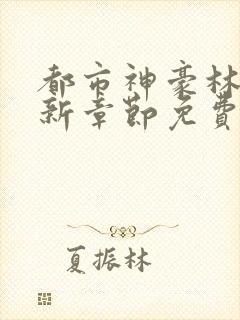 都市神豪林
新章節免費
夏振林